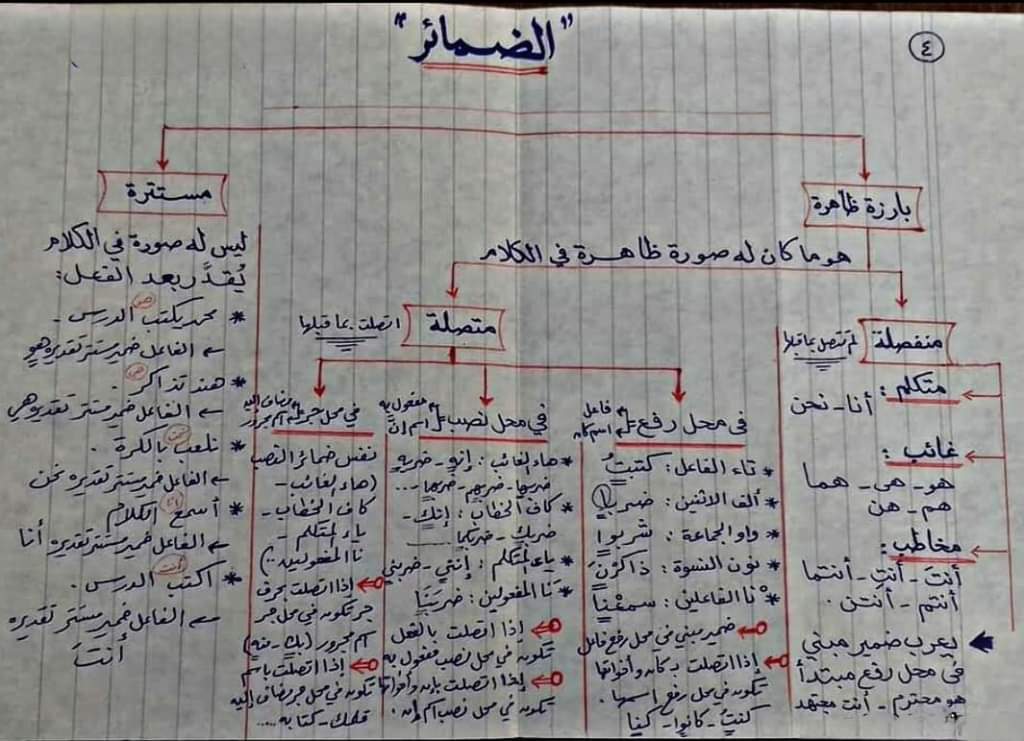 "الضمائر"
٤
بارزة ظاهرة
هو ما كان له صورة ظاهرة في الكلام
منفصلة
لم تتصل بما قبلها
متكلم :
أنا - نحن
غائب :
هو - هى - هما
هم - هن
مخاطب :
أنتَ - أنتِ - أنتما
أنتم - أنتن .
يعرب ضمير مبني
فى محل رفع مبتدأ
هو محترم - أنت مجتهد
متصلة
اتصلت بما قبلها
فى محل رفع
فاعل
اسم كان
* تاء الفاعل : كتبتُ
* ألف الاثنين : ضربا
* واو الجماعة : شربوا
* نون النسوة : ذاكرْنَ
* نا الفاعلين : سمعْنا
ضمير مبني في محل رفع فاعل
إذا اتصلت بـ كان وأخواتها
تكون في محل رفع اسمها .
كنتُ - كانوا - كنا
في محل نصب
مفعول به
اسم إنّ
* هاء الغائب : إنه - ضربه
ضربها - ضربهم - ضربهما ...
* كاف الخطاب : إنك -
ضربك - ضربكما
* ياء المتكلم : إنني - ضربني
* نا المفعولين : ضربَنَا
إذا اتصلت بالفعل
تكون في محل نصب مفعول به
إذا اتصلت بإن وأخواتها
تكون في محل نصب اسم إن .
في محل جر
مضاف إليه
اسم مجرور
نفس ضمائر النصب
(هاء الغائب -
كاف الخطاب -
ياء المتكلم -
نا المفعولين ..)
إذا اتصلت بحرف
جر تكون في محل جر
اسم مجرور (بك - منه)
إذا اتصلت باسم
تكون في محل جر مضاف إليه
قلمك - كتابه ....
مستترة
ليس له صورة في الكلام
يُقدَّر بعد الفعل :
* محمد يكتب الدرس -
هو
← الفاعل ضمير مستتر تقديره هو
* هند تذاكر .
هي
← الفاعل ضمير مستتر تقديره هي
* نلعب بالكرة .
نحن
الفاعل ضمير مستتر تقديره نحن
* أسمع الكلام
أنا
← الفاعل ضمير مستتر تقديره أنا
* اكتب الدرس .
أنت
← الفاعل ضمير مستتر تقديره
أنتَ